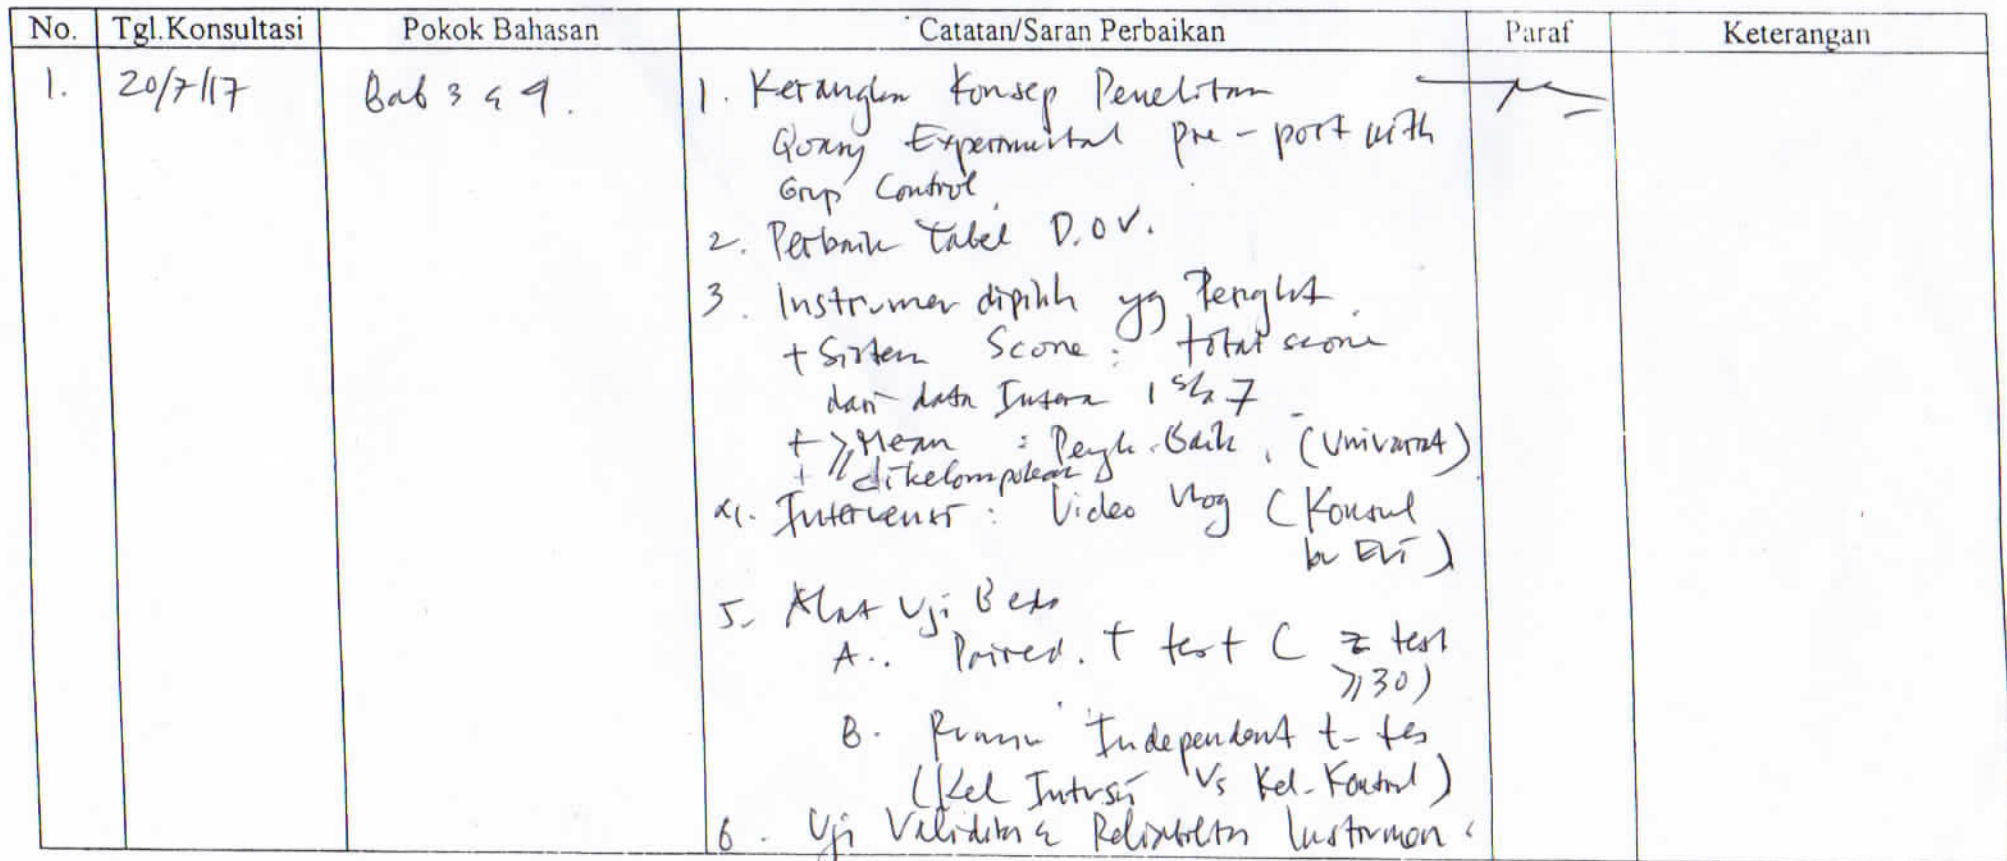 No. Tgl.Konsultasi Pokok Bahasan Catatan/Saran Perbaikan Paraf Keterangan
1. 20/7/17 Bab 3 & 4. 1. Kerangka Konsep Penelitian
Quasy Experimental pre-post with
Grup Control.
2. Perbaik tabel D.O.V.
3. Instrumen dipilih yg Penght.
+ Sistem Score: total score
dari data Intera 1 s/d 7
+ ≥ Mean : Pengh. Baik. (Univariat)
+ dikelompokan
4. Intervensi: Video Vlog (Konsul
bu Evi)
5. Alat Uji Beda
A.. Paired. T test ( z test
≥30)
B. Independent t-tes
(Kel Intvsi Vs Kel. Kontrol)
6. Uji Validitas & Reliabilitas Instrumen